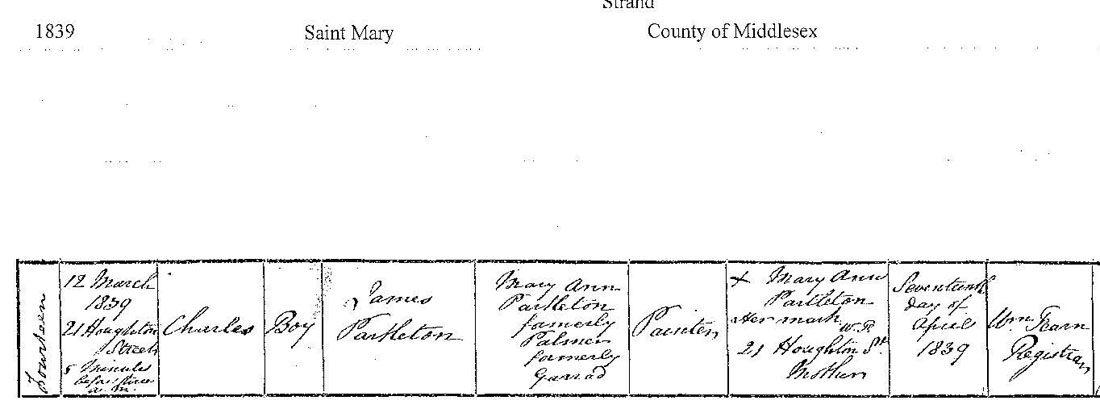 Strand
1839 Saint Mary County of Middlesex
Fourteen
12 March
1839
21 Houghton
Street
5 Minutes
before three
a.m.
Charles
Boy
James
Partleton
Mary Ann
Partleton
formerly
Palmer
formerly
Garrad
Painter
x Mary Ann
Partleton
Her mark
21 Houghton St.
Mother
Seventeenth
day of
April
1839
Wm Fearn
Registrar